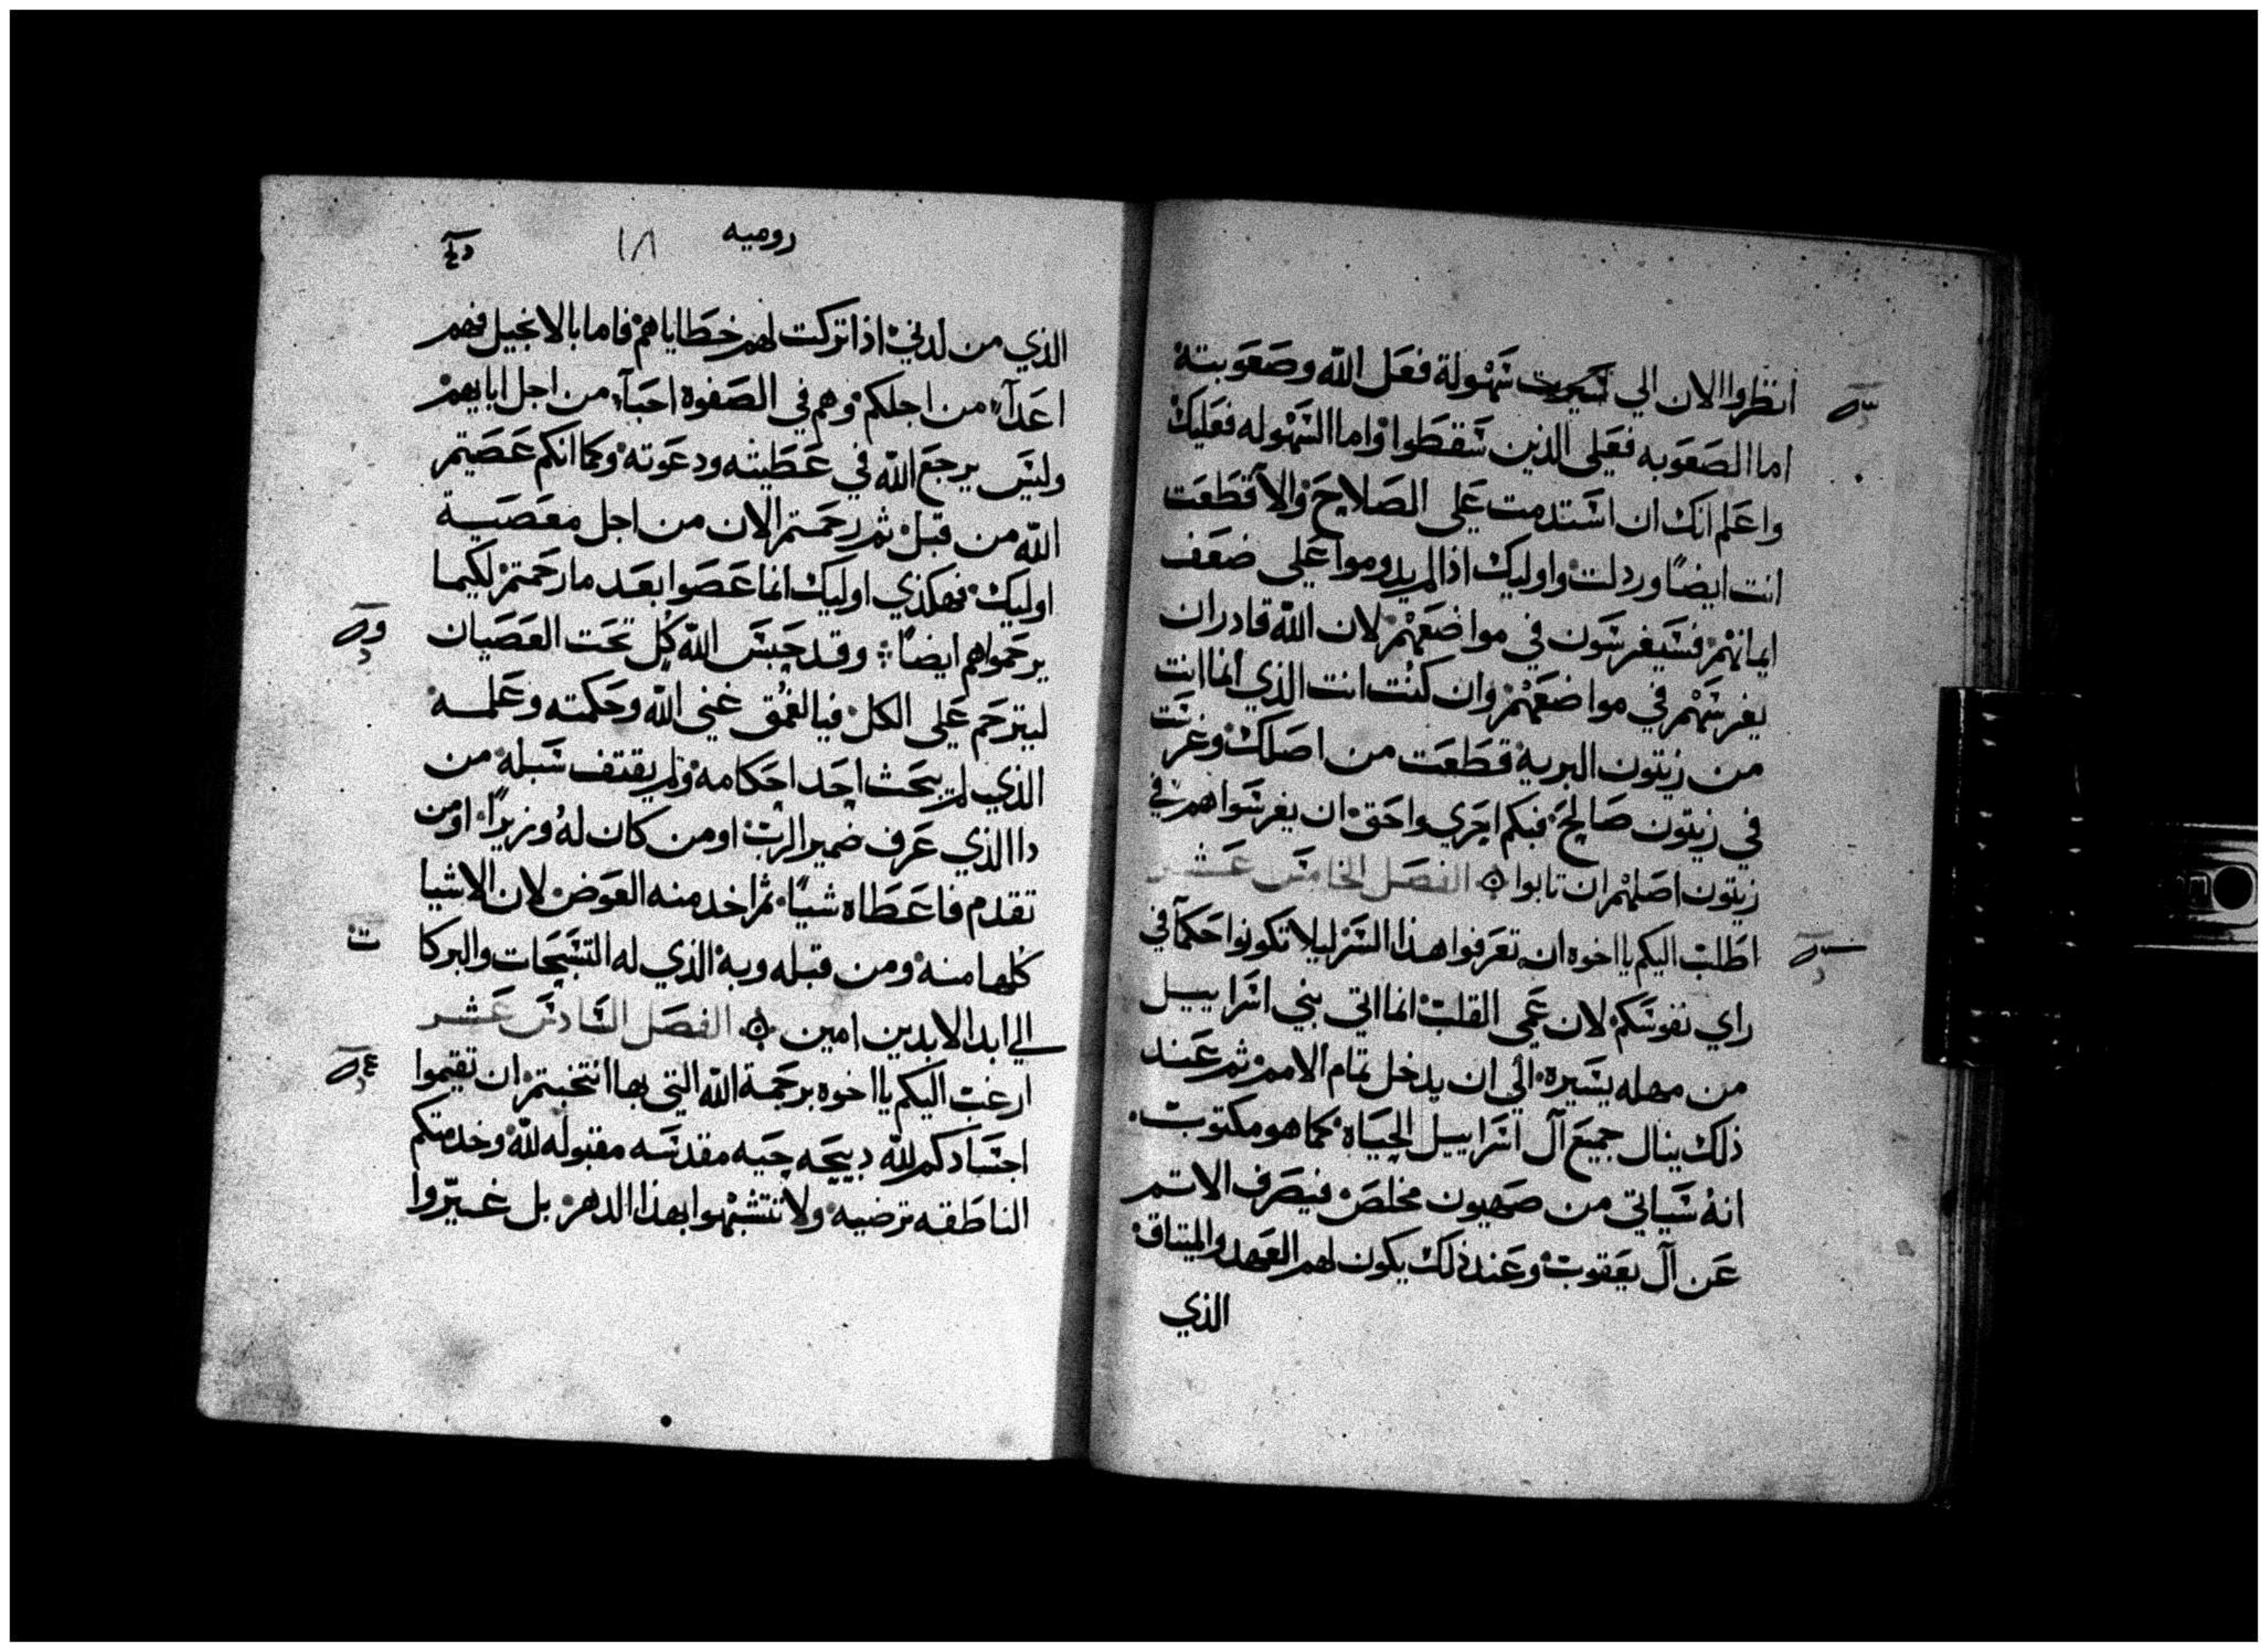 انظروا الان الي سهولة فعل الله وصعوبته
اما الصعوبه فعلي الذين سقطوا واما السهوله فعليك
واعلم انك ان استدمت علي الصلاح والا قطعت
انت ايضًا وردلت واوليك اذا لم يدوموا علي ضعف
ايمانهم فسيغرسون في مواضعهم لان الله قادر ان
يغرسهم في مواضعهم وان كنت انت الذي انما انت
من زيتون البرية قطعت من اصلك وغرست
في زيتون صالح فبكم احري واحق ان يغرسوا هم في
زيتون اصلهم ان تابوا الفصل الخامس عشر
اطلب اليكم يا اخوه ان تعرفوا هذا السر ليلا تكونوا حكمآ في
راي نفوسكم لان عمي القلب انما اتي بني اسراييل
من مهله يسيرة الي ان يدخل تمام الامم ثم عند
ذلك ينال جميع آل اسراييل الحياة كما هو مكتوب
انه سياتي من صهيون مخلص فيصرف الاثم
عن آل يعقوب وعند ذلك يكون لهم العهد والميتاق
الذي
روميه
١٨١
الذي من لدني اذا تركت لهم خطاياهم فاما بالانجيل فهم
اعدآ من اجلكم وهم في الصفوه احبآ من اجل ابايهم
وليس يرجع الله في عطيته ودعوته وكما انكم عصيتم
الله من قبل ثم رحمتم الان من اجل معصية
اوليك فهكذي اوليك انما عصوا بعد ما رحمتم لكيما
يرحموا هم ايضًا وقد حبس الله كل تحت العصيان
ليترحم علي الكل فيا لعمق غني الله وحكمته وعلمه
الذي لم يبحث احد احكامه ولم يقتف سبله من
دا الذي عرف ضمير الرب او من كان له وزيرًا او من
تقدم فاعطاه شيًا ثم اخد منه العوض لان الاشيا
كلها منه ومن قبله وبه الذي له التسبحات والبركا
ت
الي ابد الابدين امين الفصل السادس عشر
ارغب اليكم يا اخوه برحمة الله التي بها انتخبتم ان تقيموا
اجسادكم لله دبيحه حيه مقدسه مقبوله لله وخدمتكم
الناطقه ترضيه ولا تتشبهوا بهذا الدهر بل غيروا